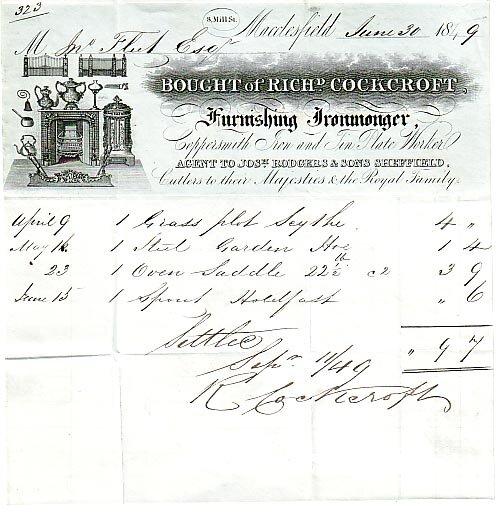 323
8, Mill St.
Macclesfield June 30 1849
M Jno Fleet Esqr
BOUGHT of RICHD. COCKCROFT,
Furnishing Ironmonger,
Coppersmith Iron and Tin Plate Worker
AGENT TO JOSH. RODGERS & SONS SHEFFIELD,
Cutlers to their Majesties & the Royal Family.
April 9 1 Grass plot Scythe 4 "
May 14 1 Steel Garden Hoe 1 4
23 1 Oven Saddle 22½ lb c2 3 9
June 15 1 Spout Holdfast " 6
" 9 7
Settled
Sepr 11/49
R Cockcroft